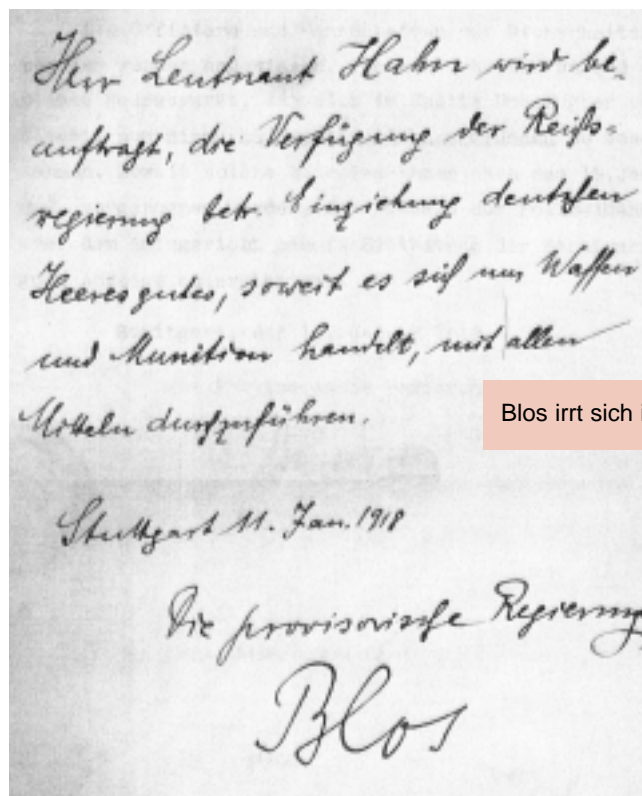 Herr Leutnant Hahn wird be-
auftragt, die Verfügung der Reichs-
regierung betr. Einziehung deutschen
Heeresgutes, soweit es sich um Waffen
und Munition handelt, mit allen
Mitteln durchzuführen.
Blos irrt sich i
Stuttgart 11. Jan. 1918
Die provisorische Regierung
Blos